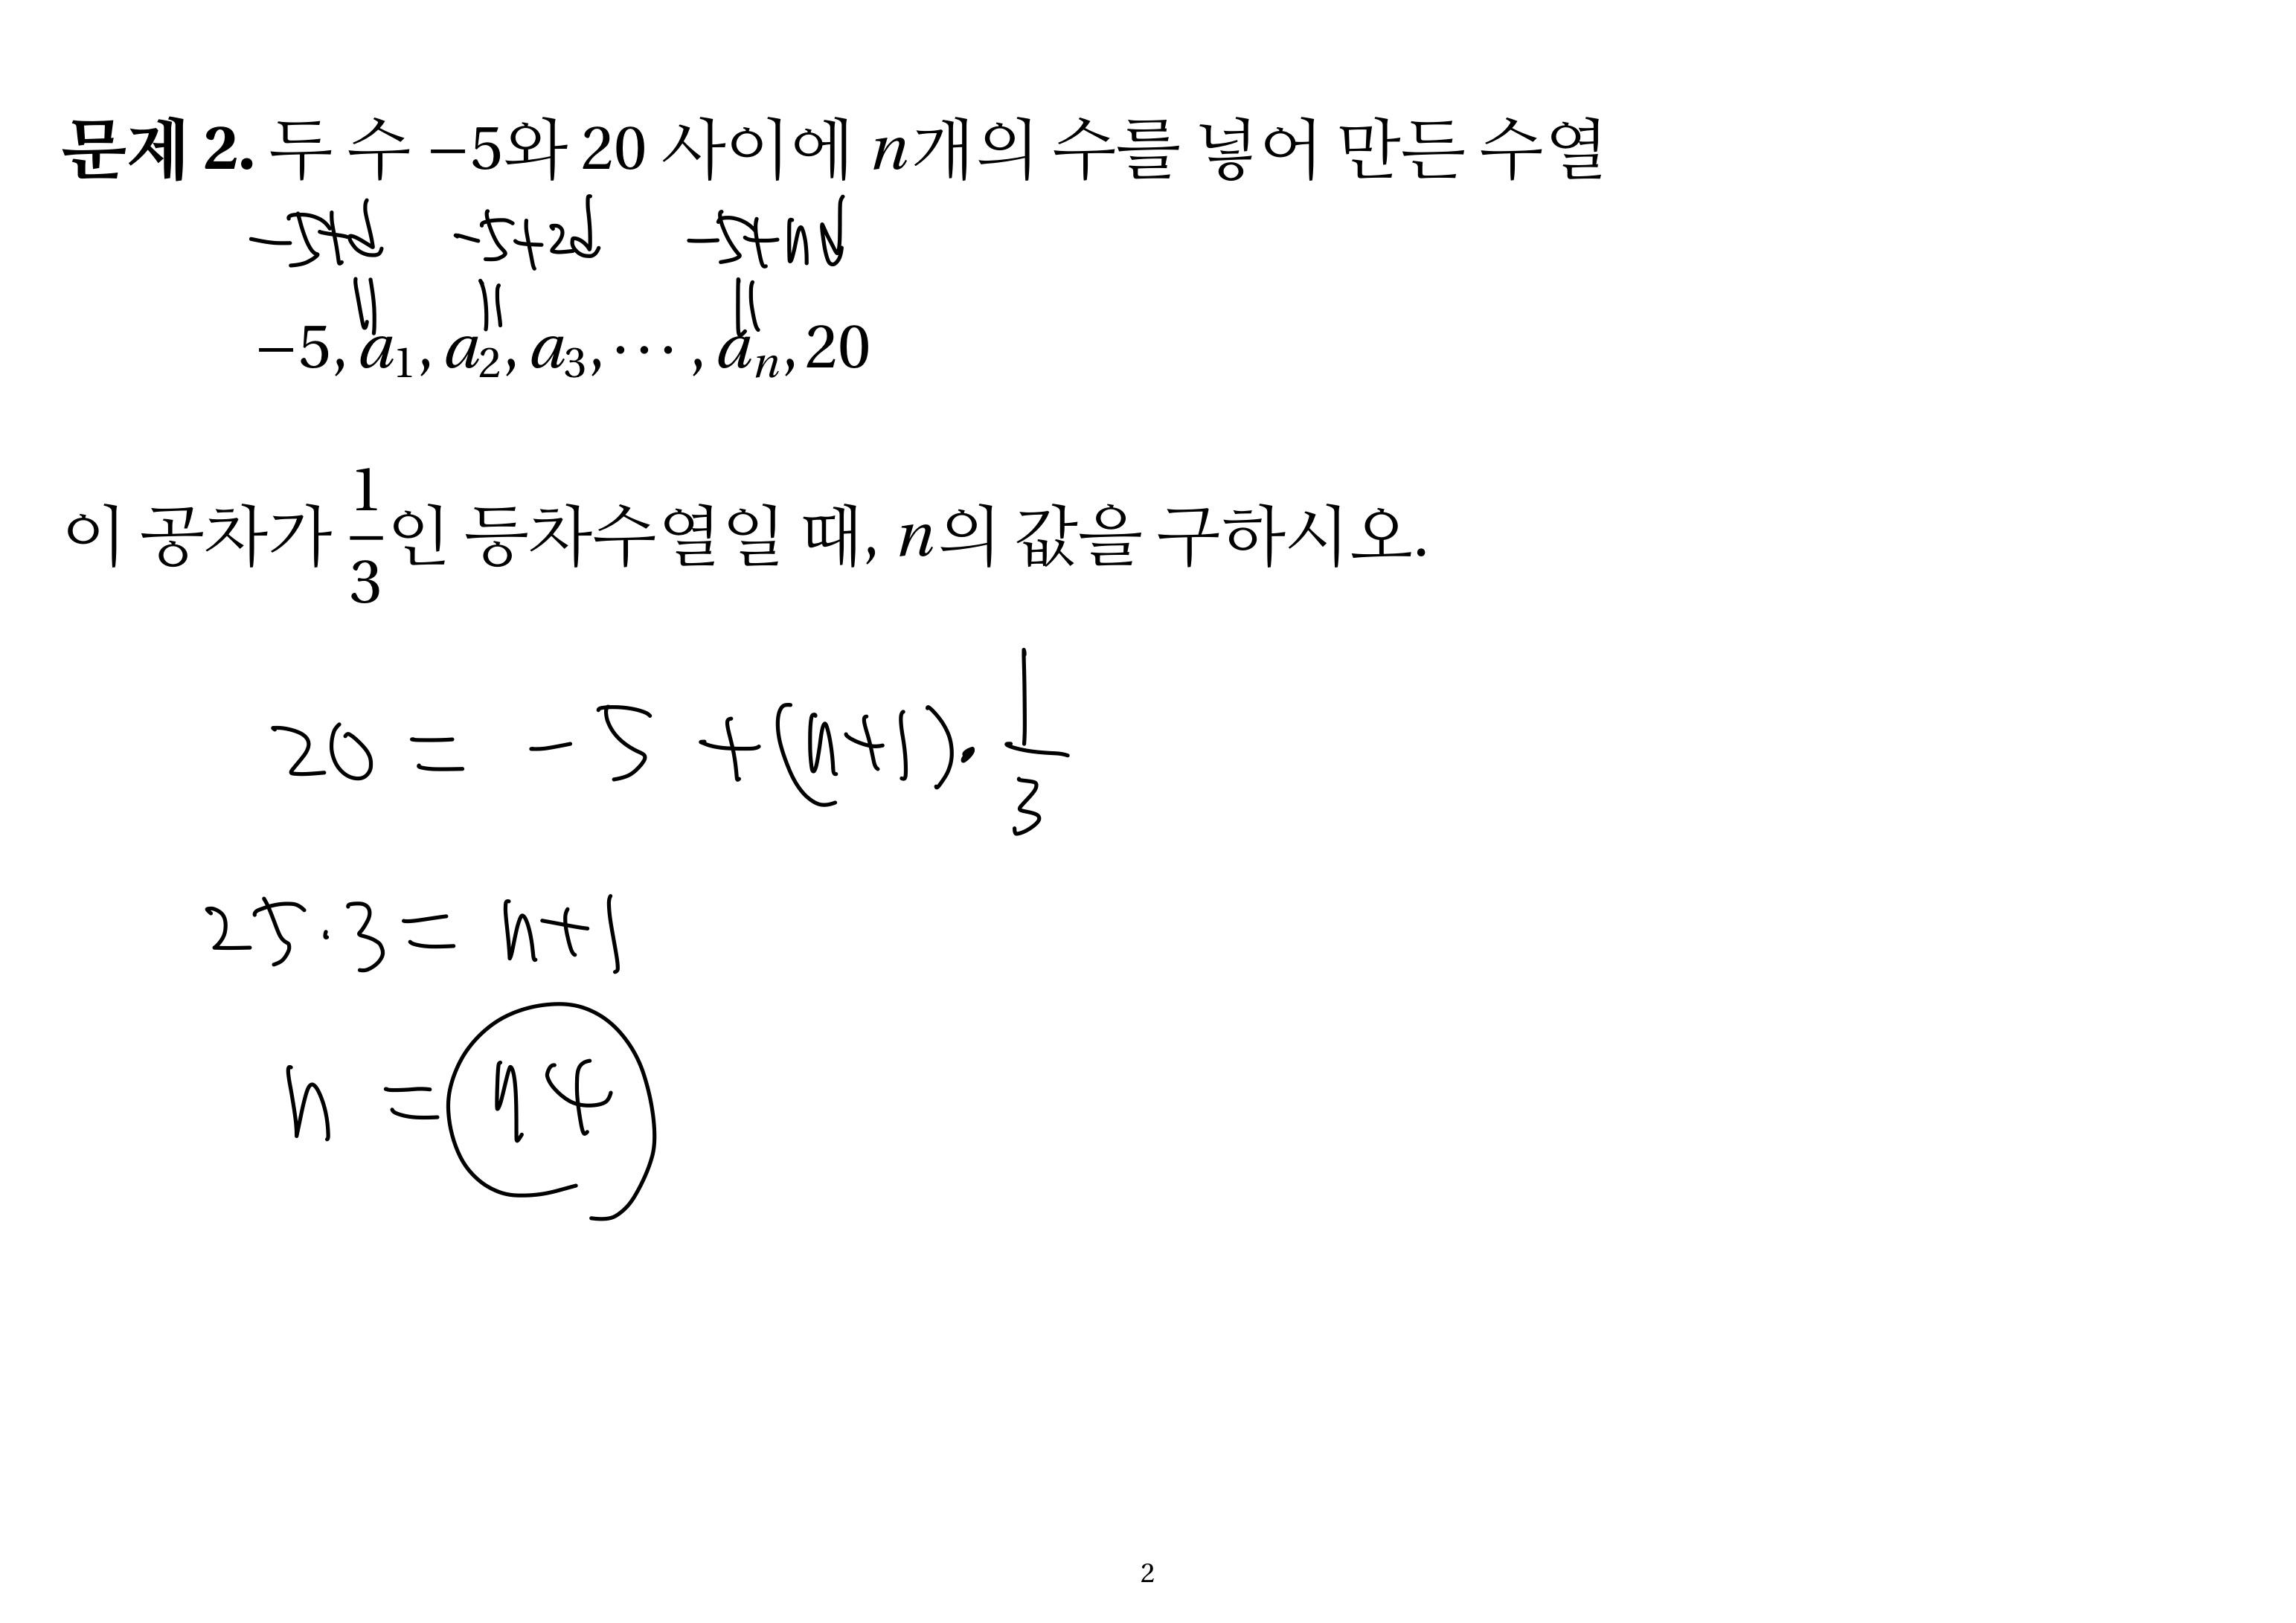 문제 2. 두 수 −5와 20 사이에 n개의 수를 넣어 만든 수열
−5+d −5+2d −5+nd
|| || ||
−5, a₁, a₂, a₃, ⋯ , aₙ, 20
이 공차가 1/3인 등차수열일 때, n의 값을 구하시오.
20 = −5 + (n+1)·1/3
25·3 = n+1
n = 74
2